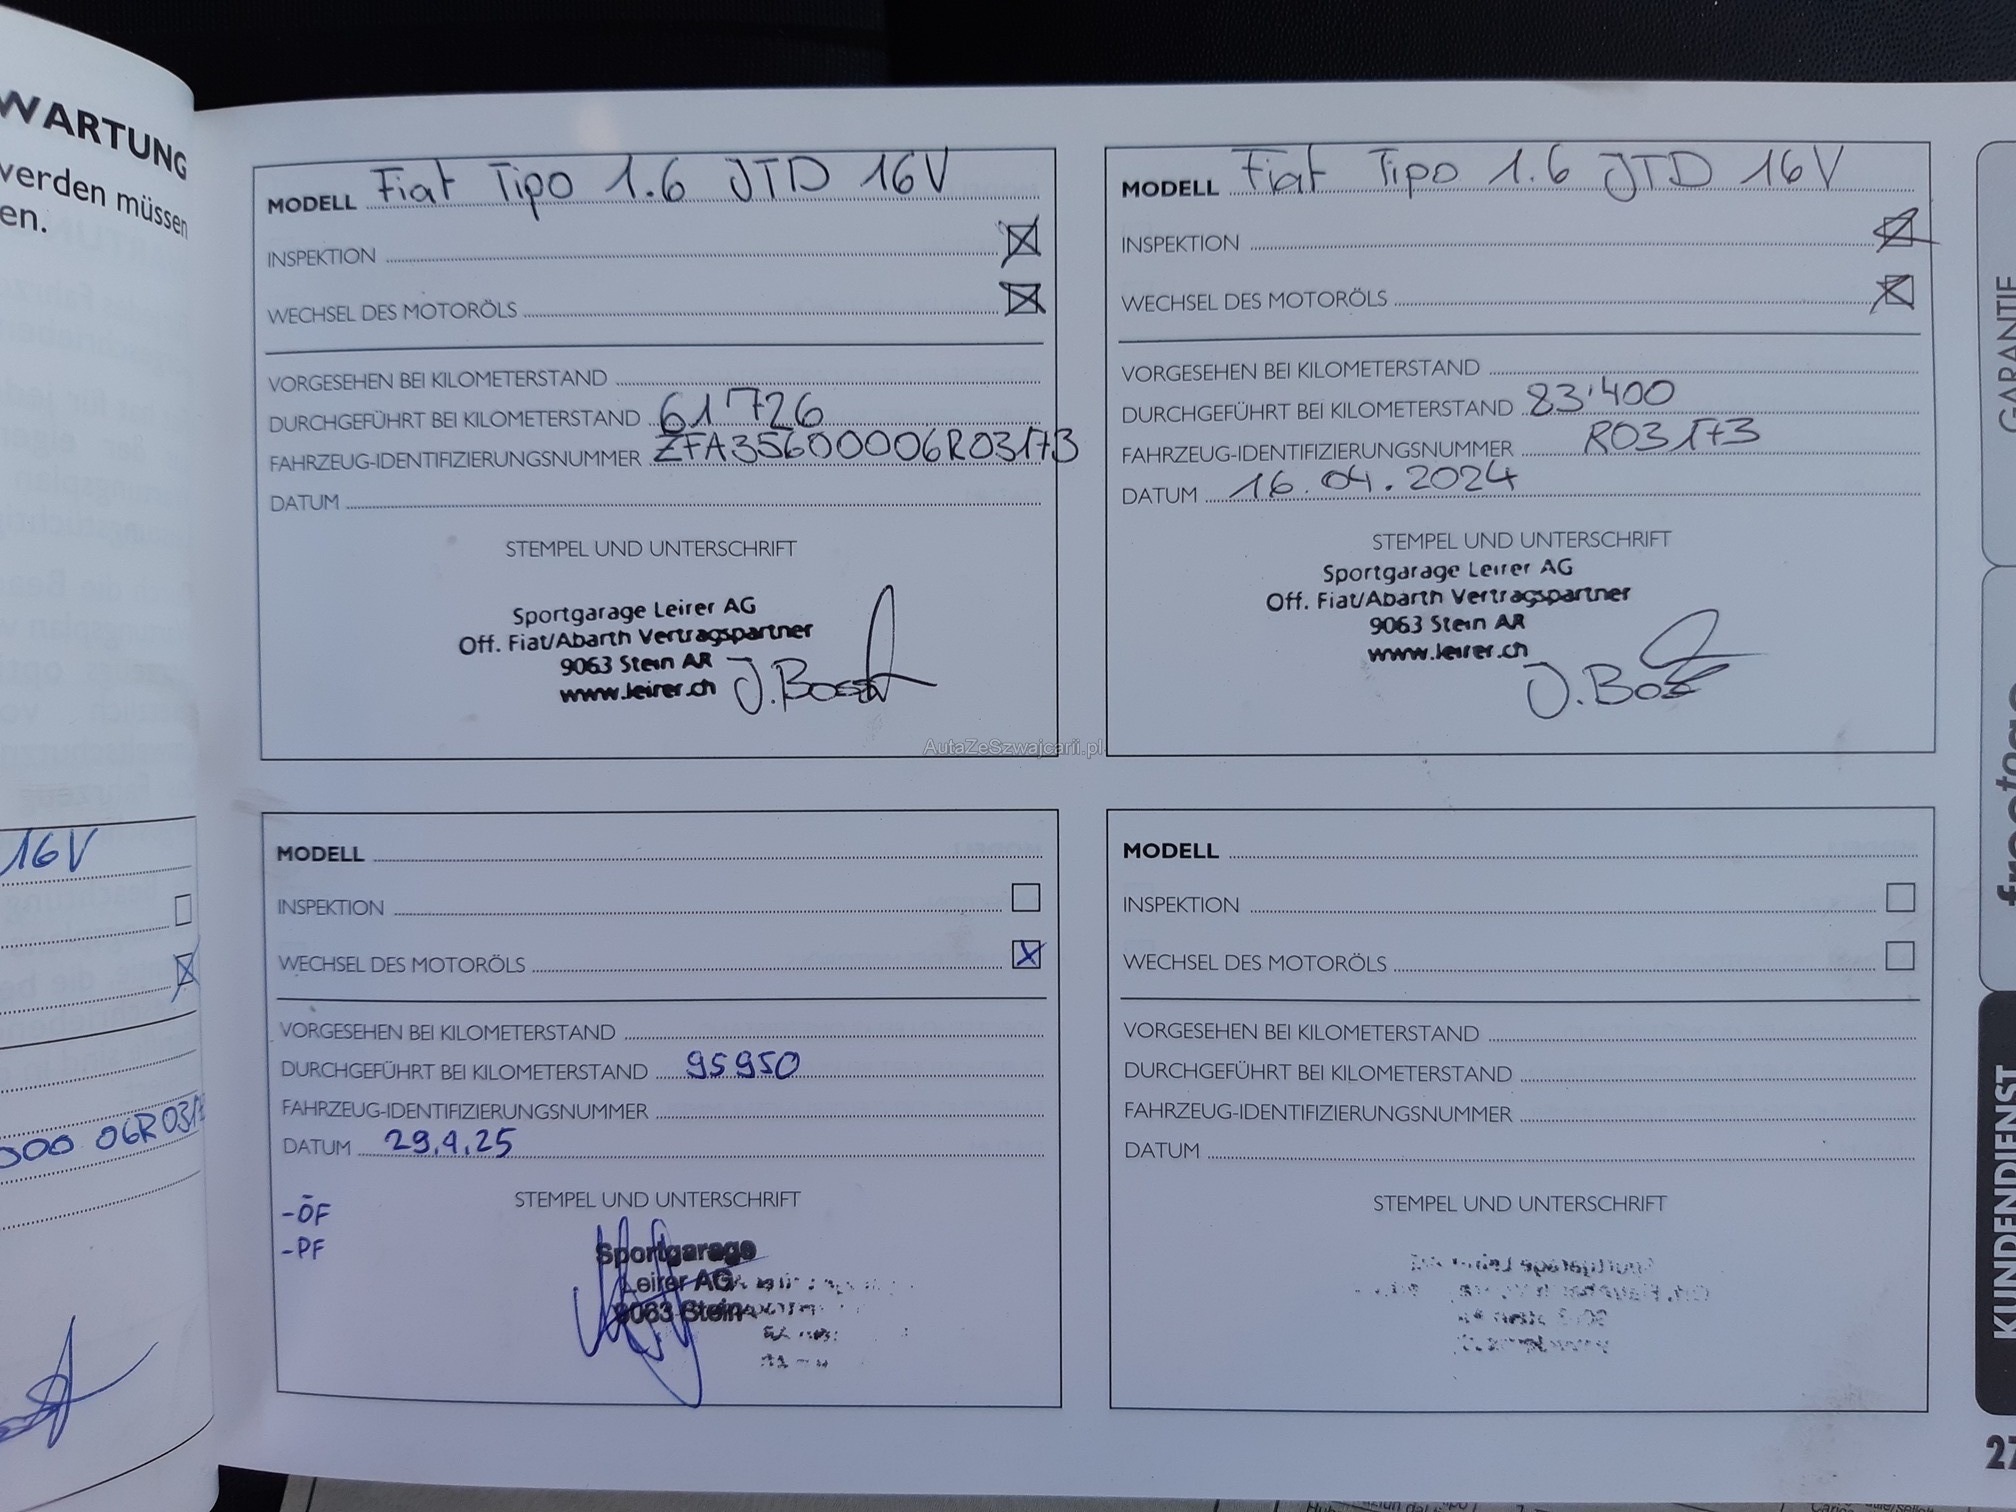 WARTUNG
verden müssen
en.
16V
000 06R031
MODELL Fiat Tipo 1.6 JTD 16V
INSPEKTION
WECHSEL DES MOTORÖLS
VORGESEHEN BEI KILOMETERSTAND
DURCHGEFÜHRT BEI KILOMETERSTAND 61'726
FAHRZEUG-IDENTIFIZIERUNGSNUMMER ZFA35600006R03173
DATUM
STEMPEL UND UNTERSCHRIFT
Sportgarage Leirer AG
Off. Fiat/Abarth Vertragspartner
9063 Stein AR
www.leirer.ch
MODELL Fiat Tipo 1.6 JTD 16V
INSPEKTION
WECHSEL DES MOTORÖLS
VORGESEHEN BEI KILOMETERSTAND
DURCHGEFÜHRT BEI KILOMETERSTAND 83'400
FAHRZEUG-IDENTIFIZIERUNGSNUMMER R03173
DATUM 16.04.2024
STEMPEL UND UNTERSCHRIFT
Sportgarage Leirer AG
Off. Fiat/Abarth Vertragspartner
9063 Stein AR
www.leirer.ch
AutaZeSzwajcarii.pl
MODELL
INSPEKTION
WECHSEL DES MOTORÖLS
VORGESEHEN BEI KILOMETERSTAND
DURCHGEFÜHRT BEI KILOMETERSTAND 95950
FAHRZEUG-IDENTIFIZIERUNGSNUMMER
DATUM 29.4.25
STEMPEL UND UNTERSCHRIFT
-ÖF
-PF
Sportgarage
Leirer AG
9063 Stein
MODELL
INSPEKTION
WECHSEL DES MOTORÖLS
VORGESEHEN BEI KILOMETERSTAND
DURCHGEFÜHRT BEI KILOMETERSTAND
FAHRZEUG-IDENTIFIZIERUNGSNUMMER
DATUM
STEMPEL UND UNTERSCHRIFT
GARANTIE
KUNDENDIENST
27